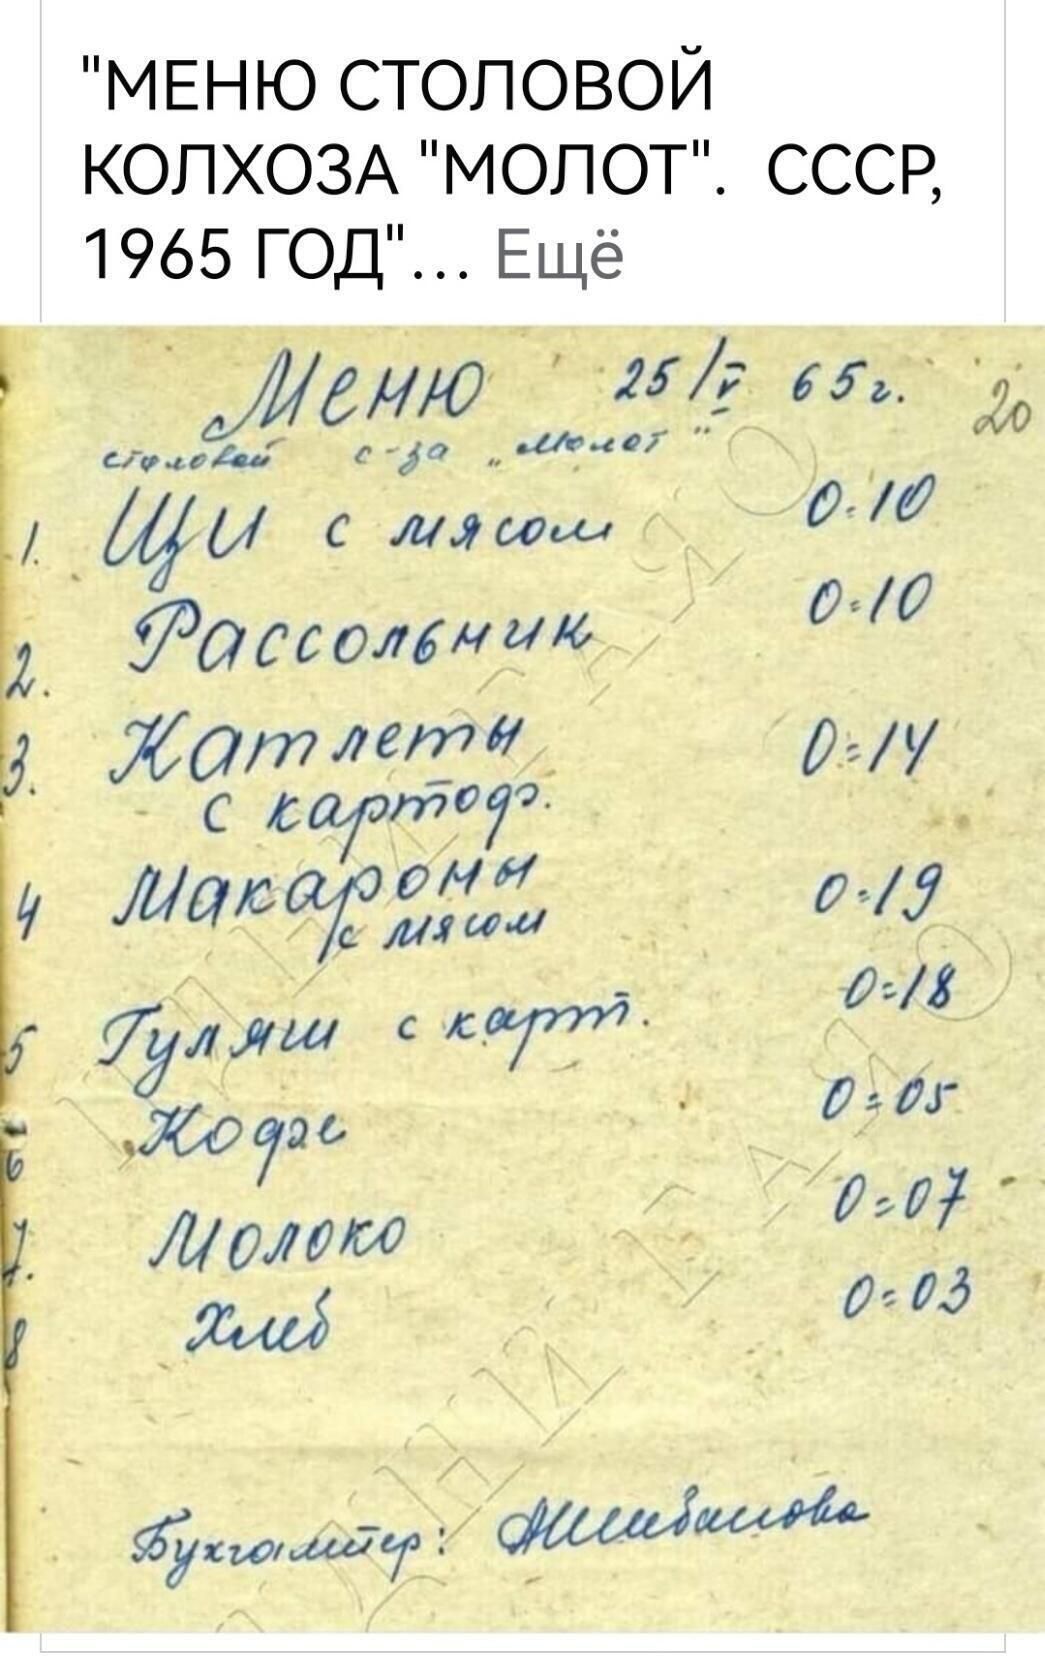 "МЕНЮ СТОЛОВОЙ
КОЛХОЗА "МОЛОТ". СССР,
1965 ГОД"... Ещё
Меню 25/V 65 г. 20
столовой с-за "Молот"
1. Щи с мясом 0=10
2. Рассольник 0=10
3. Катлеты 0=14
с картоф.
4 Макароны 0=19
с мясом
5 Гуляш с карт. 0=18
6 Кофе 0=05
7. Молоко 0=07
8 Хлеб 0=03
Бухгалтер: АШибанова